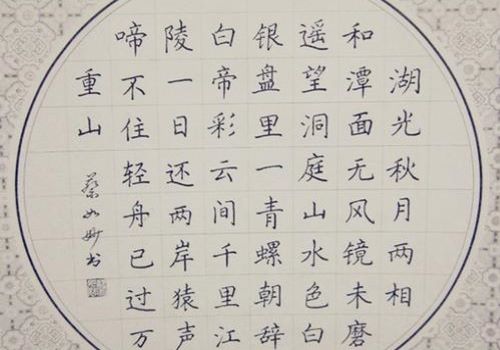 湖光秋月两相
和潭面无风镜未磨
遥望洞庭山水色白
银盘里一青螺朝辞
白帝彩云间千里江
陵一日还两岸猿声
啼不住轻舟已过万
重山
蔡如妙书